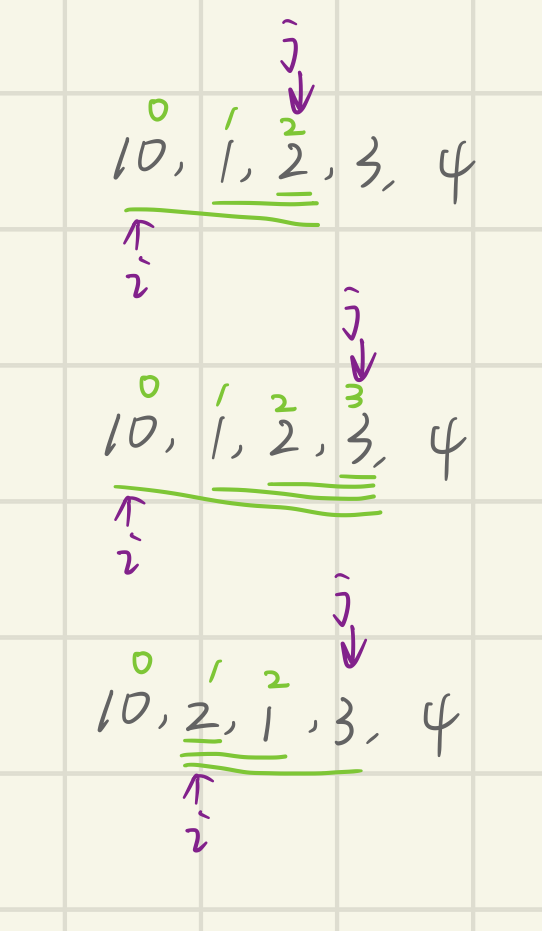 j
0 1 2
10, 1, 2, 3, 4
i
j
0 1 2 3
10, 1, 2, 3, 4
i
j
0 1 2
10, 2, 1, 3, 4
i